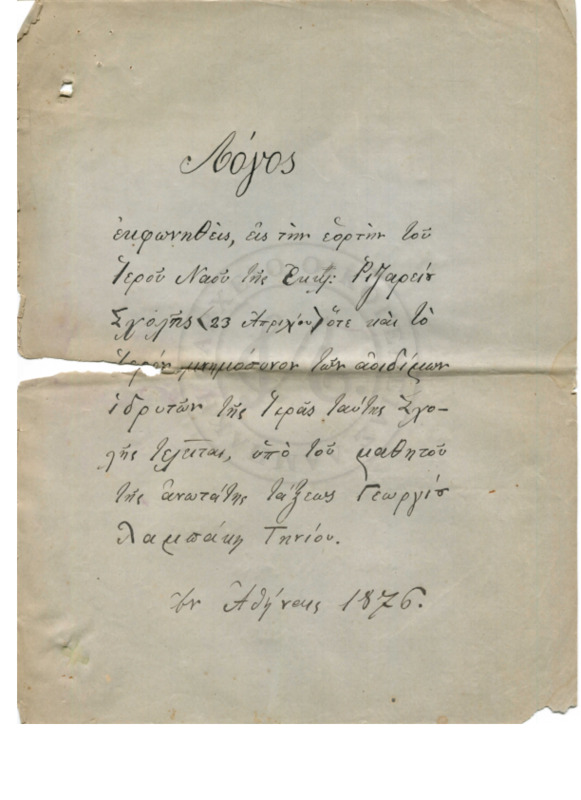 Λόγος
ἐκφωνηθεὶς, εἰς τὴν ἑορτὴν τοῦ
Ἱεροῦ Ναοῦ τῆς Ἐκκλ: Ῥιζαρείου
Σχολῆς (23 Απριλίου) ὅτε καὶ τὸ
Ἱερὸν μνημόσυνον τῶν ἀοιδίμων
ἱδρυτῶν τῆς Ἱερᾶς ταύτης Σχο-
λῆς τελεῖται, ὑπὸ τοῦ μαθητοῦ
τῆς ἀνωτάτης τάξεως Γεωργίου
Λαμπάκη Τηνίου.
ἐν Ἀθήναις 1876.